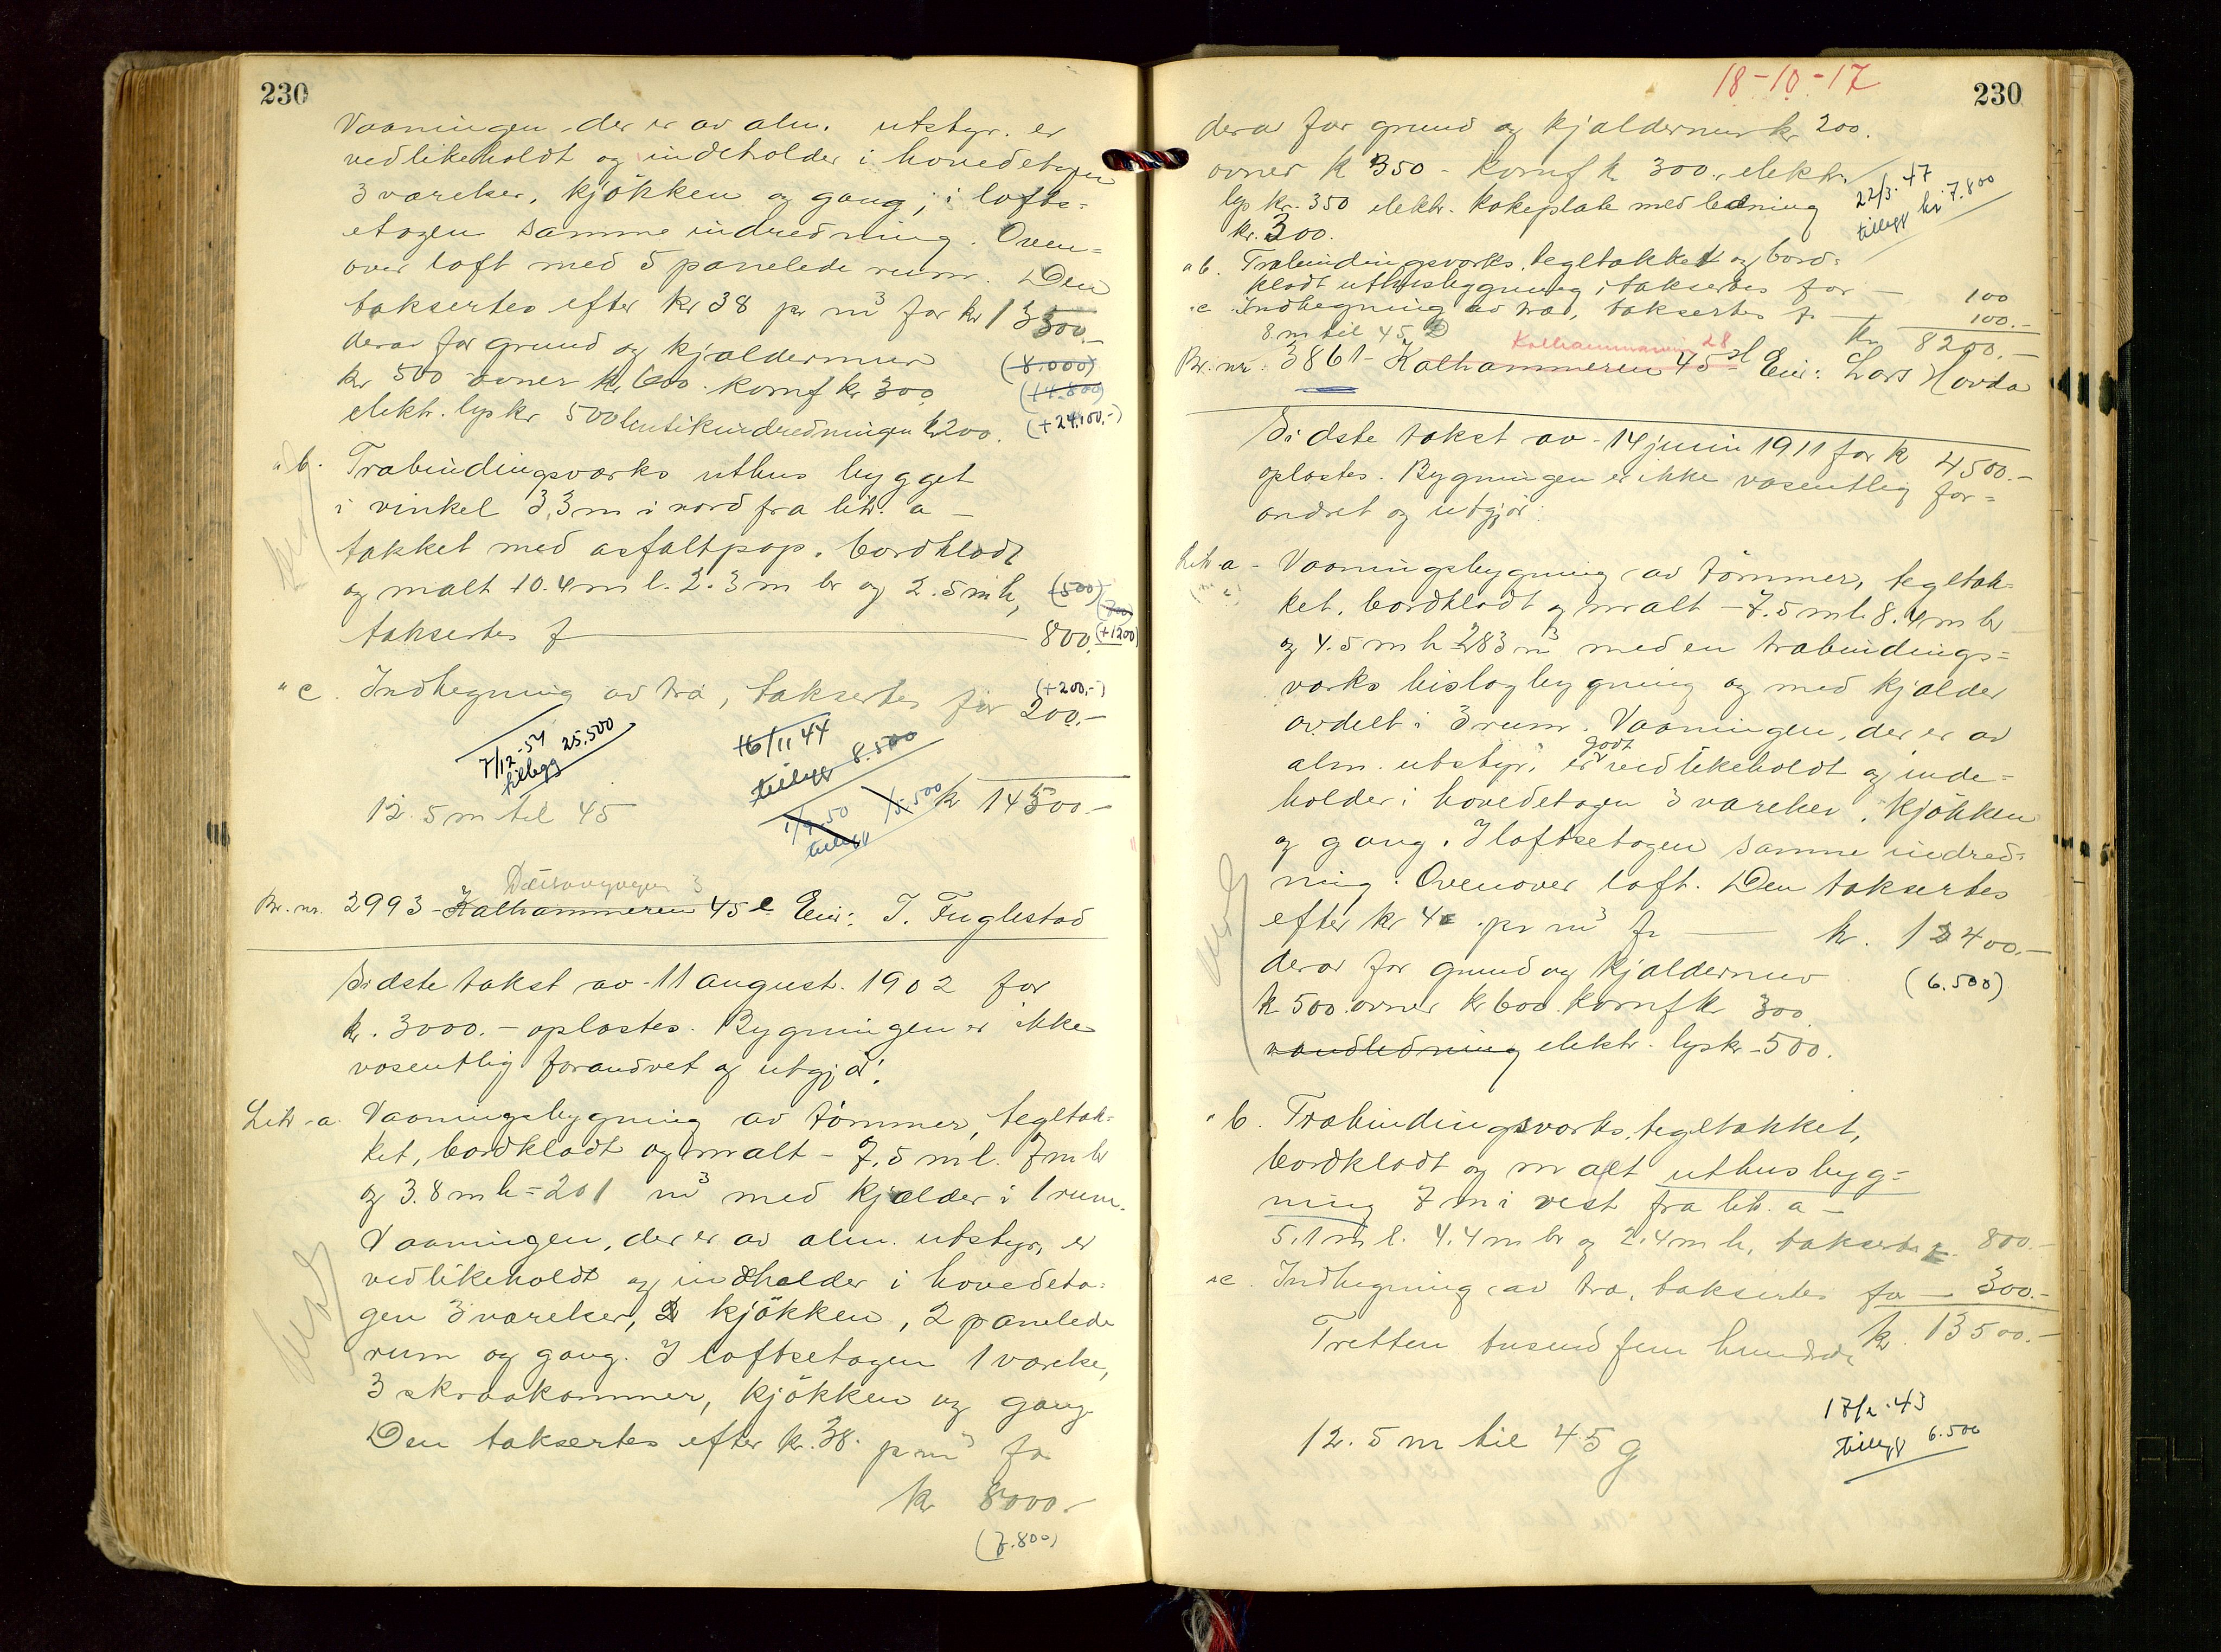 230
Vaaningen der er av alm. utstyr. er
vedlikeholdt og indeholder i hovedetagen
3 værelser, kjökken og gang; i lofts=
etagen samme indredning. Oven=
over loft med 5 panelede rum. Den
taksertes efter kr 38 pr m³ for kr 13500.-
derav for grund og kjældermur (8.000)
kr 500 ovner kr 600. komf kr 300 (14.800)
elektr. lys kr 500 butikindredningen kr 200. (+24100,-)
" b. Træbindingsverks uthus bygget
i vinkel 3,3 m i nord fra litr. a -
tækket med asfaltpap. bordklædt
og malt 10.4 m l. 2.3 m br og 2.5 m h, (500) (700)
taksertes f 800. (+1200)
" c. Indhegning av træ, taksertes for 200.- (+200,-)
7/12-54 25.500
tillegg
16/11 44
tillegg 8.500
1/9.50 15.500
tillegg
kr 14500.-
12.5 m til 45
Dusavgveien 3
Br. nr. 2993 - Kalhammeren 45 e Eier: T. Fuglestad
Sidste takst av 11 august. 1902 for
kr. 3000.- oplæstes. Bygningen er ikke
væsentlig forandret og utgjør:
Litr a. Vaaningsbygning av tömmer, tegltæk-
ket, bordklædt og malt - 7,5 m l. 7 m br
og 3.8 m h = 201 m³ med kjælder i 1 rum.
Vaaningen, der er av alm. utstyr, er
vedlikeholdt og indholder i hovedeta-
gen 3 værelser, kjökken, 2 panelede
rum og gang. I loftsetagen 1 værelse,
3 skraakammer, kjökken og gang.
Den taksertes efter kr. 38. pr m³ for
kr 8000.-
(7.800)
18-10-17
230
derav for grund og kjældermur kr 200.
ovner kr 350 - komf kr 300., elektr.
lys kr. 350 elektr. kokeplate med ledning
kr. 300.
22/3.47
tillegg kr 7.800
" b. Træbindingsverks, tegltækket og bord=
klædt uthusbygning, taksertes for - 100
" c Indhegning av træ, taksertes f. - 100.-
8 m til 45 D kr 8200.-
Kalhammaren 28
Br. nr. 3861 - Kalhammeren 45 d Eier: Lars Hovda
Sidste takst av 14 juni 1911 for kr 4500.-
oplæstes. Bygningen er ikke væsentlig for=
andret og utgjør:
Litr a - Vaaningsbygning av tömmer, tegltæk-
ket, bordklædt og malt - 7.5 m l. 8.4 m br
og 4.5 m h 283 m³ med en træbindings=
værks bislagbygning og med kjælder
avdelt i 3 rum. Vaaningen, der er av
alm. utstyr, er godt vedlikeholdt og inde=
holder i hovedetagen 3 værelser, kjökken
og gang. I loftsetagen samme indred=
ning. Ovenover loft. Den taksertes
efter kr 4 pr m³ fr kr. 12400.-
derav for grund og kjældermur (6.500)
kr 500. ovner kr 600. komf kr 300
vandledning elektr. lys kr - 500.
" b. Træbindingsværks, tegltækket,
bordklædt og malt uthusbyg=
ning 7 m i vest fra litr. a -
5.1 m l. 4.4 m br og 2.4 m h, taksertes 800.-
" c. Indhegning av træ, taksertes for - 300.-
Tretten tusend fem hundrede kr. 13500.-
17/2.43
tillegg 6.500
12.5 m til 45 g